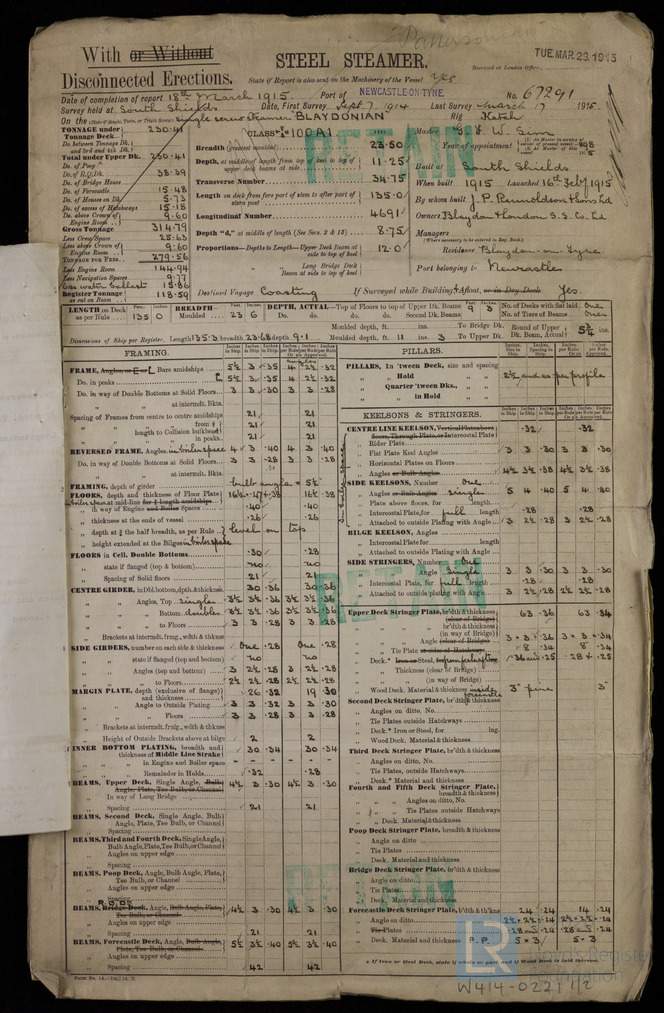 With or Without
Disconnected Erections.
STEEL STEAMER.
State if Report is also sent on the Machinery of the Vessel yes
TUE. MAR. 23. 1915
Received at London Office,
Date of completion of report 18th March 1915. Port of NEWCASTLE-ON-TYNE. No. 67291
Survey held at South Shields Date, First Survey Sept 7, 1914 Last Survey March 17 1915
On the single screw steamer BLAYDONIAN Rig Ketch
TONNAGE under Tonnage Deck 230.41
CLASS 100A1
Do. between Tonnage Dk. and 3rd and 4th Dk.
Total under Upper Dk. 230.41
Do. of Poop
Do. of R.Q.Dk. 38.39
Do. of Bridge House
Do. of Forecastle 15.48
Do. of Houses on Dk 5.73
Do. of excess of Hatchways 15.18
Do. above Crown of Engine Room 9.60
Gross Tonnage 314.79
Less Crew Space 25.63
Less above Crown of Engine Room 9.60
TONNAGE FOR FEES 279.56
Less Engine Room 144.94
Less Navigation Spaces 9.77
Less water ballast 15.86
Register Tonnage as cut on Beam 118.59
Breadth (greatest moulded) 23.50
Depth, at middle of length from top of keel to top of upper deck beams at side 11.25
Transverse Number 34.75
Length on deck from fore part of stem to after part of stern post 135.0
Longitudinal Number 4691
Depth "d," at middle of length (See Secs. 2 & 13) 8.75
Proportions—Depths to Length—Upper Deck Beam at side to top of keel 12.0
Long Bridge Deck Beam at side to top of keel
Destined Voyage Coasting If Surveyed while Building, Afloat, or in Dry Dock Yes.
Year of appointment
Built at South Shields
When built 1915 Launched 16th Feby 1915
By whom built J. P. Rennoldson & Sons Ld
Owners Blaydon & London S.S. Co. Ld
Managers
(Where necessary to be entered in Reg. Book.)
Residence Blaydon-on-Tyne
Port belonging to Newcastle
RETAIN
LENGTH on Deck as per Rule 135 0
BREADTH—Moulded 23 6
DEPTH, ACTUAL—Top of Floors to top of Upper Dk. Beams 9 3
Do. do. Second Dk. Beams
No. of Decks with flat laid One
No. of Tiers of Beams One
Moulded depth, ft. ins. To Bridge Dk.
Round of Upper Dk. Beam, Actual 5¾ ins.
Dimensions of Ship per Register, Length 135.3 breadth 23.68 depth 9.1 Moulded depth, ft. 11 ins. 3 To Upper Dk.
FRAMING.
FRAME, Angles, or E or L Bars amidships 5½ 3 .35
Do. in peaks 5½ 3 .35
Do. in way of Double Bottoms at Solid Floors 3 3 .30 3 3 .28
at intermdt. Bkts.
Spacing of Frames from centre to centre amidships 21 21
length to Collision bulkhead 21 21
in peaks 21 21
REVERSED FRAME, Angles in boiler space 4 3 .40 4 3 .40
Do. in way of Double Bottoms at Solid Floors 3 3 .28 3 3 .28
at intermdt. Bkts.
FRAMING, depth of girder bulb angle = 5½
FLOORS, depth and thickness of Floor Plate
in way of Engine and Boiler Spaces .40 .40
thickness at the ends of vessel .26 .26
depth at ¾ the half breadth, as per Rule level on top
height extended at the Bilges in boiler space
FLOORS in Cell. Double Bottoms .30 .28
state if flanged (top & bottom) no no
Spacing of Solid floors 21 21
CENTRE GIRDER, in Dbl. bottom, depth & thickness 30 .36 30 .36
Angles, Top single 3½ 3½ .36 3½ 3½ .36
Bottom double 3½ 3½ .36 3½ 3½ .36
to Floors 3 3 .28 3 3 .28
Brackets at intermdt. frmg., wdth & thknss
SIDE GIRDERS, number on each side & thickness One .28 One .28
state if flanged (top and bottom) no no
Angles (top and bottom) 3 2½ .28 3 2½ .28
to Floors 2½ 2½ .28 2½ 2½ .28
MARGIN PLATE, depth (exclusive of flange) and thickness 26 .32 19 .30
Angle to Outside Plating 3 3 .32 3 3 .30
Floors 3 3 .28 3 3 .28
Brackets at intermdt. frmg., wdth & thknss
Height of Outside Brackets above at bilge 2 2
INNER BOTTOM PLATING, breadth and thickness of Middle Line Strake 30 .34 30 .34
in Engine and Boiler space - - - -
Remainder in Holds .32 .28
BEAMS, Upper Deck, Single Angle, Bulb Angle, Plate, Tee Bulb, or Channel 4½ 3 .30 4½ 3 .30
In way of Long Bridge
Spacing 21 21
BEAMS, Second Deck, Single Angle, Bulb Angle, Plate, Tee Bulb, or Channel
Spacing
BEAMS, Third and Fourth Deck, Single Angle, Bulb Angle, Plate, Tee Bulb, or Channel
Angles on upper edge
Spacing
BEAMS, Poop Deck, Angle, Bulb Angle, Plate, Tee Bulb, or Channel
Angles on upper edge
Spacing
R.Q.Dk
BEAMS, Bridge Deck, Angle, Bulb Angle, Plate, Tee Bulb, or Channel 4½ 3 .30 4½ 3 .30
Angles on upper edge
Spacing 21 21
BEAMS, Forecastle Deck, Angle, Bulb Angle, Plate, Tee Bulb, or Channel 5½ 3 .40 5½ 3 .40
Angles on upper edge
Spacing 42 42
PILLARS.
PILLARS, In 'tween Deck, size and spacing
Hold 2½ and as per profile
Quarter 'tween Dks.,
in Hold
KEELSONS & STRINGERS.
CENTRE LINE KEELSON, Vertical Plate above floors, Through Plate, or Intercostal Plate .32 .32
Rider Plate
Flat Plate Keel Angles 3 3 .30 3 3 .30
Horizontal Plates on Floors
Angles or Bulb Angles 4½ 3½ .38 4½ 3½ .38
SIDE KEELSONS, Number One
Angles or Bulb Angles single 5 4 .40 5 4 .40
Plate above floors, for length
Intercostal Plate, for full length .28 .28
Attached to outside Plating with Angle 3 2½ .28 3 2½ .28
BILGE KEELSON, Angles
Intercostal Plate for length
Attached to outside Plating with Angle
SIDE STRINGERS, Number One
Angle Single 3 3 .30 3 3 .30
Intercostal Plate, for full length .28 .28
Attached to outside plating with Angle 3 2½ .28 2½ 2½ .28
Upper Deck Stringer Plate, br'dth & thickness (clear of Bridge) 63 .36 63 .34
br'dth & thickness (in way of Bridge)
Angle (clear of Bridge) 3 × 3 × .36 3 × 3 × .34
Tie Plate at sides of Hatchways 8 .34 8 .34
Deck * Iron or Steel
Thickness (clear of Bridge)
(in way of Bridge)
Wood Deck. Material & thickness inside forecastle 3" pine 3"
Second Deck Stringer Plate, br'dth & thickness
Angles on ditto, No.
Tie Plates outside Hatchways
Deck * Iron or Steel, for lng.
Wood Deck. Material & thickness
Third Deck Stringer Plate, br'dth & thickness
Angles on ditto, No.
Tie Plates, outside Hatchways
Deck * Material and thickness
Fourth and Fifth Deck Stringer Plate, breadth & thickness
Angles on ditto, No.
Tie Plates outside Hatchways
Deck. Material & thickness
Poop Deck Stringer Plate, breadth & thickness
Angle on ditto
Tie Plates
Deck. Material and thickness
Bridge Deck Stringer Plate, br'dth & thickness
Angle on ditto
Tie Plates
Deck. Material and thickness
Forecastle Deck Stringer Plate, b'dth & th'kns 24 .24 14 .24
Angle on ditto
Tie Plates
Deck. Material and thickness P.P. 5 × 3 5 × 3
* If Iron or Steel Deck, state if whole or part, and if Wood Deck is laid thereon.
W414-0221 1/2